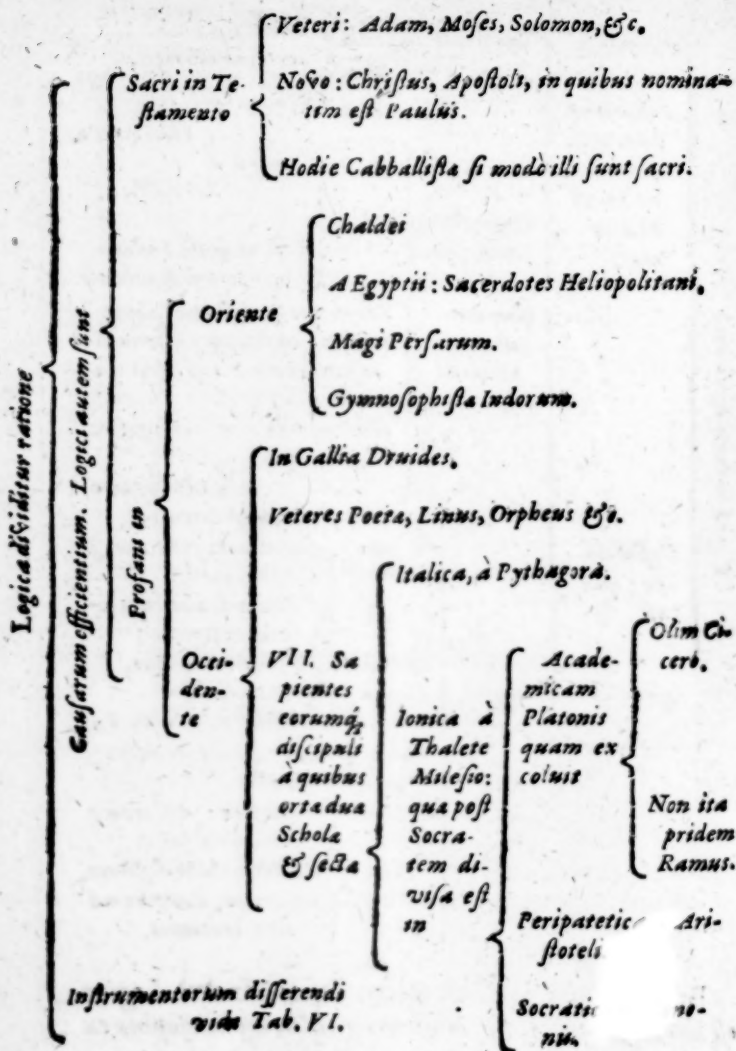 Logica dividitur ratione
Causarum efficientium. Logici autem sunt
Sacri in Te-
stamento
Veteri: Adam, Moses, Solomon, &c.
Novo: Christus, Apostoli, in quibus nomina-
tim est Paulus.
Hodie Cabballistæ si modò illi sunt sacri.
Profani in
Oriente
Chaldei
AEgyptii: Sacerdotes Heliopolitani.
Magi Persarum.
Gymnosophistæ Indorum.
Occi-
den-
te
In Gallia Druides.
Veteres Poetæ, Linus, Orpheus &c.
VII. Sa
pientes
eorumq́;
discipuli
à quibus
orta duæ
Scholæ
& sectæ
Italica, à Pythagorà.
Ionica à
Thalete
Milesio:
quæ post
Socra-
tem di-
visa est
in
Acade-
micam
Platonis
quam ex
coluit
Olim Ci-
cero.
Non ita
pridem
Ramus.
Peripatetic Ari-
stoteli
Socratic no-
nis.
Instrumentorum disserendi
vide Tab. VI.